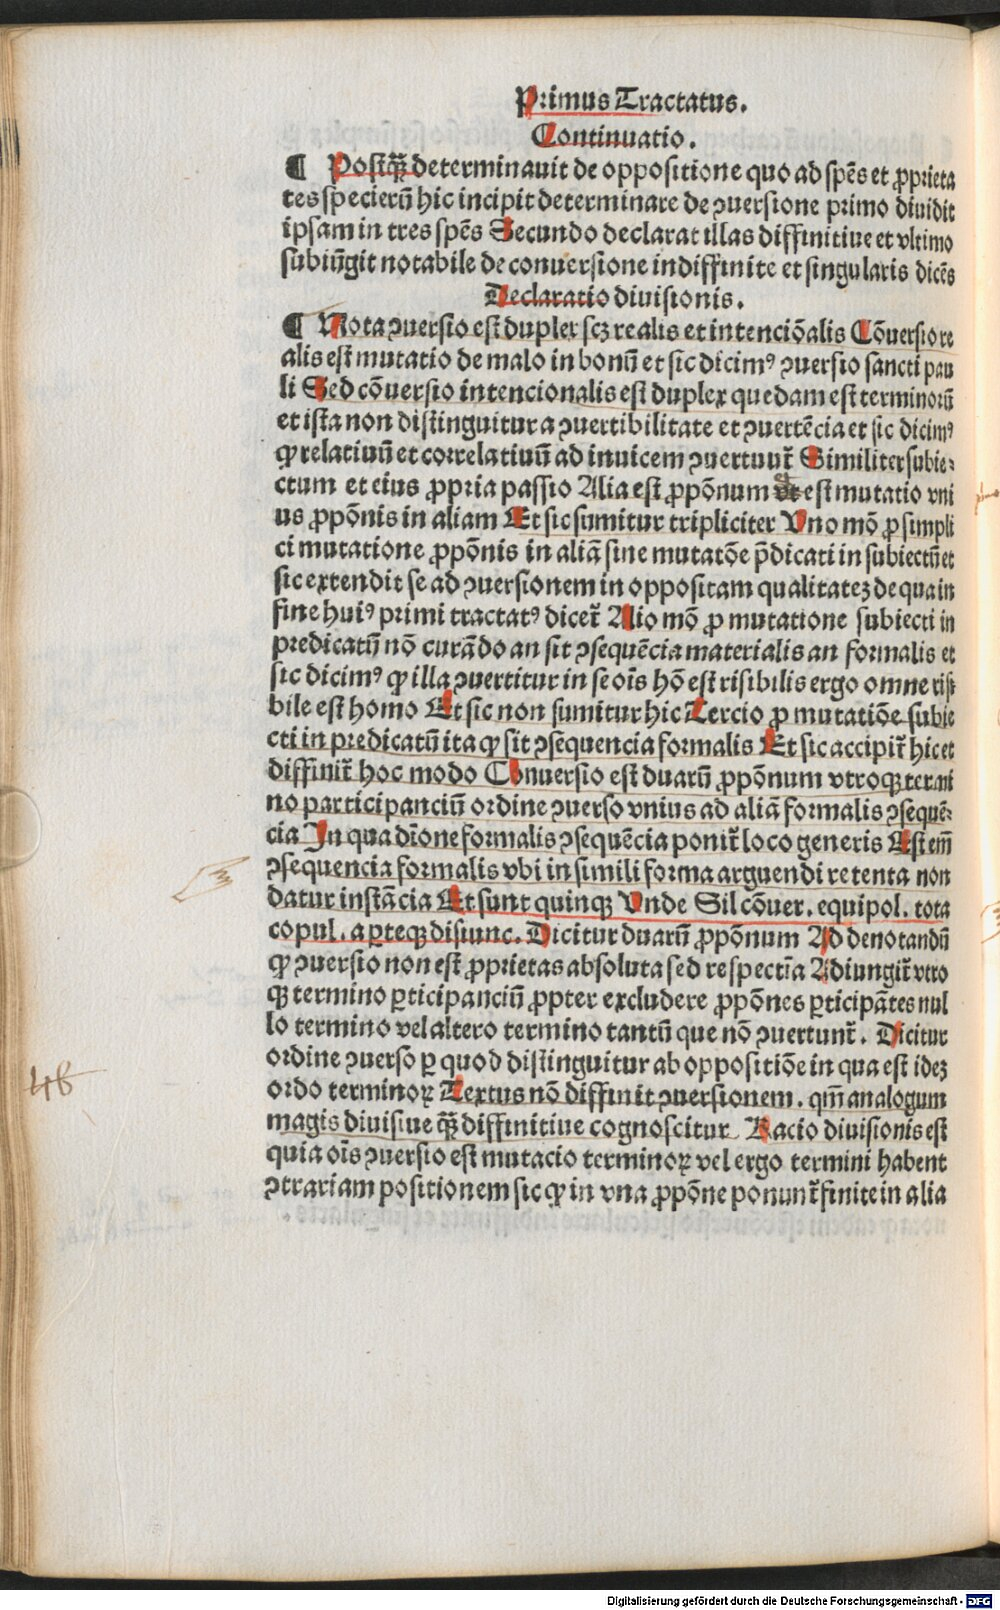 Primus Tractatus.
Continuatio.
¶ Postꝙ̄ determinauit de oppositione quo ad spēs et ꝓprieta
tes specierū hic incipit determinare de ꝯuersione primo diuidit
ipsam in tres spēs Secundo declarat illas diffinitiue et vltimo
subiūgit notabile de conuersione indiffinite et singularis dicēs
Declaratio diuisionis.
¶ Nota ꝯuersio est duplex scꝫ realis et intenciōalis Cōuersio re
alis est mutatio de malo in bonū et sic dicimꝰ ꝯuersio sancti pau
li Sed cōuersio intencionalis est duplex quedam est terminorū
et ista non distinguitur a ꝯuertibilitate et ꝯuertēcia et sic dicimꝰ
ꝙ relatiuū et correlatiuū ad inuicem ꝯuertuur̄ Similiter subie⸗
ctum et eius ꝓpria passio Alia est ꝓpōnum est mutatio vni
us ꝓpōnis in aliam Et sic sumitur tripliciter Vno mō ꝓ simpli
ci mutatione ꝓpōnis in aliā sine mutatōe p̄dicati in subiectū et
sic extendit se ad ꝯuersionem in oppositam qualitateꝫ de qua in
fine huiꝰ primi tractatꝰ dicet̄ Alio mō ꝓ mutatione subiecti in
predicatū nō curādo an sit ꝯsequēcia materialis an formalis et
sic dicimꝰ ꝙ illa ꝯuertitur in se oīs hō est risibilis ergo omne risi
bile est homo Et sic non sumitur hic Tercio ꝓ mutatiōe subie
cti in predicatū ita ꝙ sit ꝯsequencia formalis Et sic accipit̄ hic et
diffinit̄ hoc modo Conuersio est duarū ꝓpōnum vtroqꝫ termi
no participanciū ordine ꝯuerso vnius ad aliā formalis ꝯsequē⸗
cia In qua dīone formalis ꝯsequēcia ponit̄ loco generis Est em̄
ꝯsequencia formalis vbi in simili forma arguendi retenta non
datur instācia Et sunt quinqꝫ Vnde Sil cōuer. equipol. tota
copul. a ꝑteqꝫ disiunc. Dicitur duarū ꝓpōnum Ad denotandū
ꝙ ꝯuersio non est ꝓprietas absoluta sed respectīa Adiungit̄ vtro
qꝫ termino ꝑticipanciū ꝓpter excludere ꝓpōnes ꝑticipātes nul
lo termino vel altero termino tantū que nō ꝯuertunt̄. Dicitur
ordine ꝯuerso ꝑ quod distinguitur ab oppositiōe in qua est ideꝫ
ordo terminoꝝ Textus nō diffinit ꝯuersionem. qm̄ analogum
magis diuisiue ꝙ̄ diffinitiue cognoscitur Racio diuisionis est
quia oīs ꝯuersio est mutacio terminoꝝ vel ergo termini habent
ꝯtrariam positionem sic ꝙ in vna ꝓpōne ponunt̄ finite in alia
46
Digitalisierung gefördert durch die Deutsche Forschungsgemeinschaft - DFG